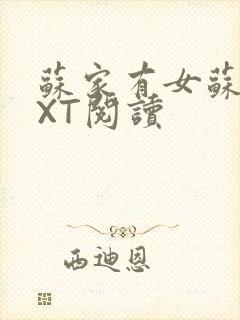 蘇家有女蘇
XT閱讀
西迪恩